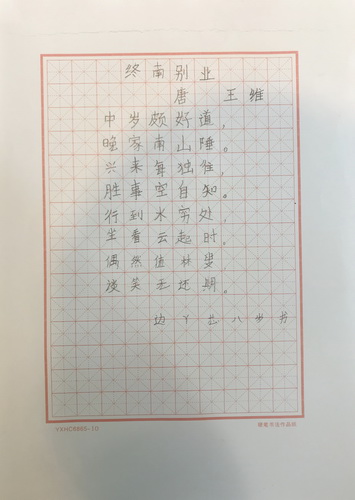 终南别业
唐 王维
中岁颇好道，
晚家南山陲。
兴来每独往，
胜事空自知。
行到水穷处，
坐看云起时。
偶然值林叟，
谈笑无还期。
丫 八岁书
YXHC8805-10